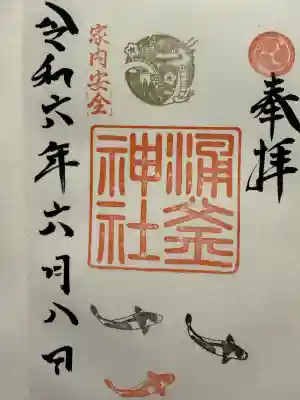 奉拝
涌釜
神社
家内安全
令和六年六月八日